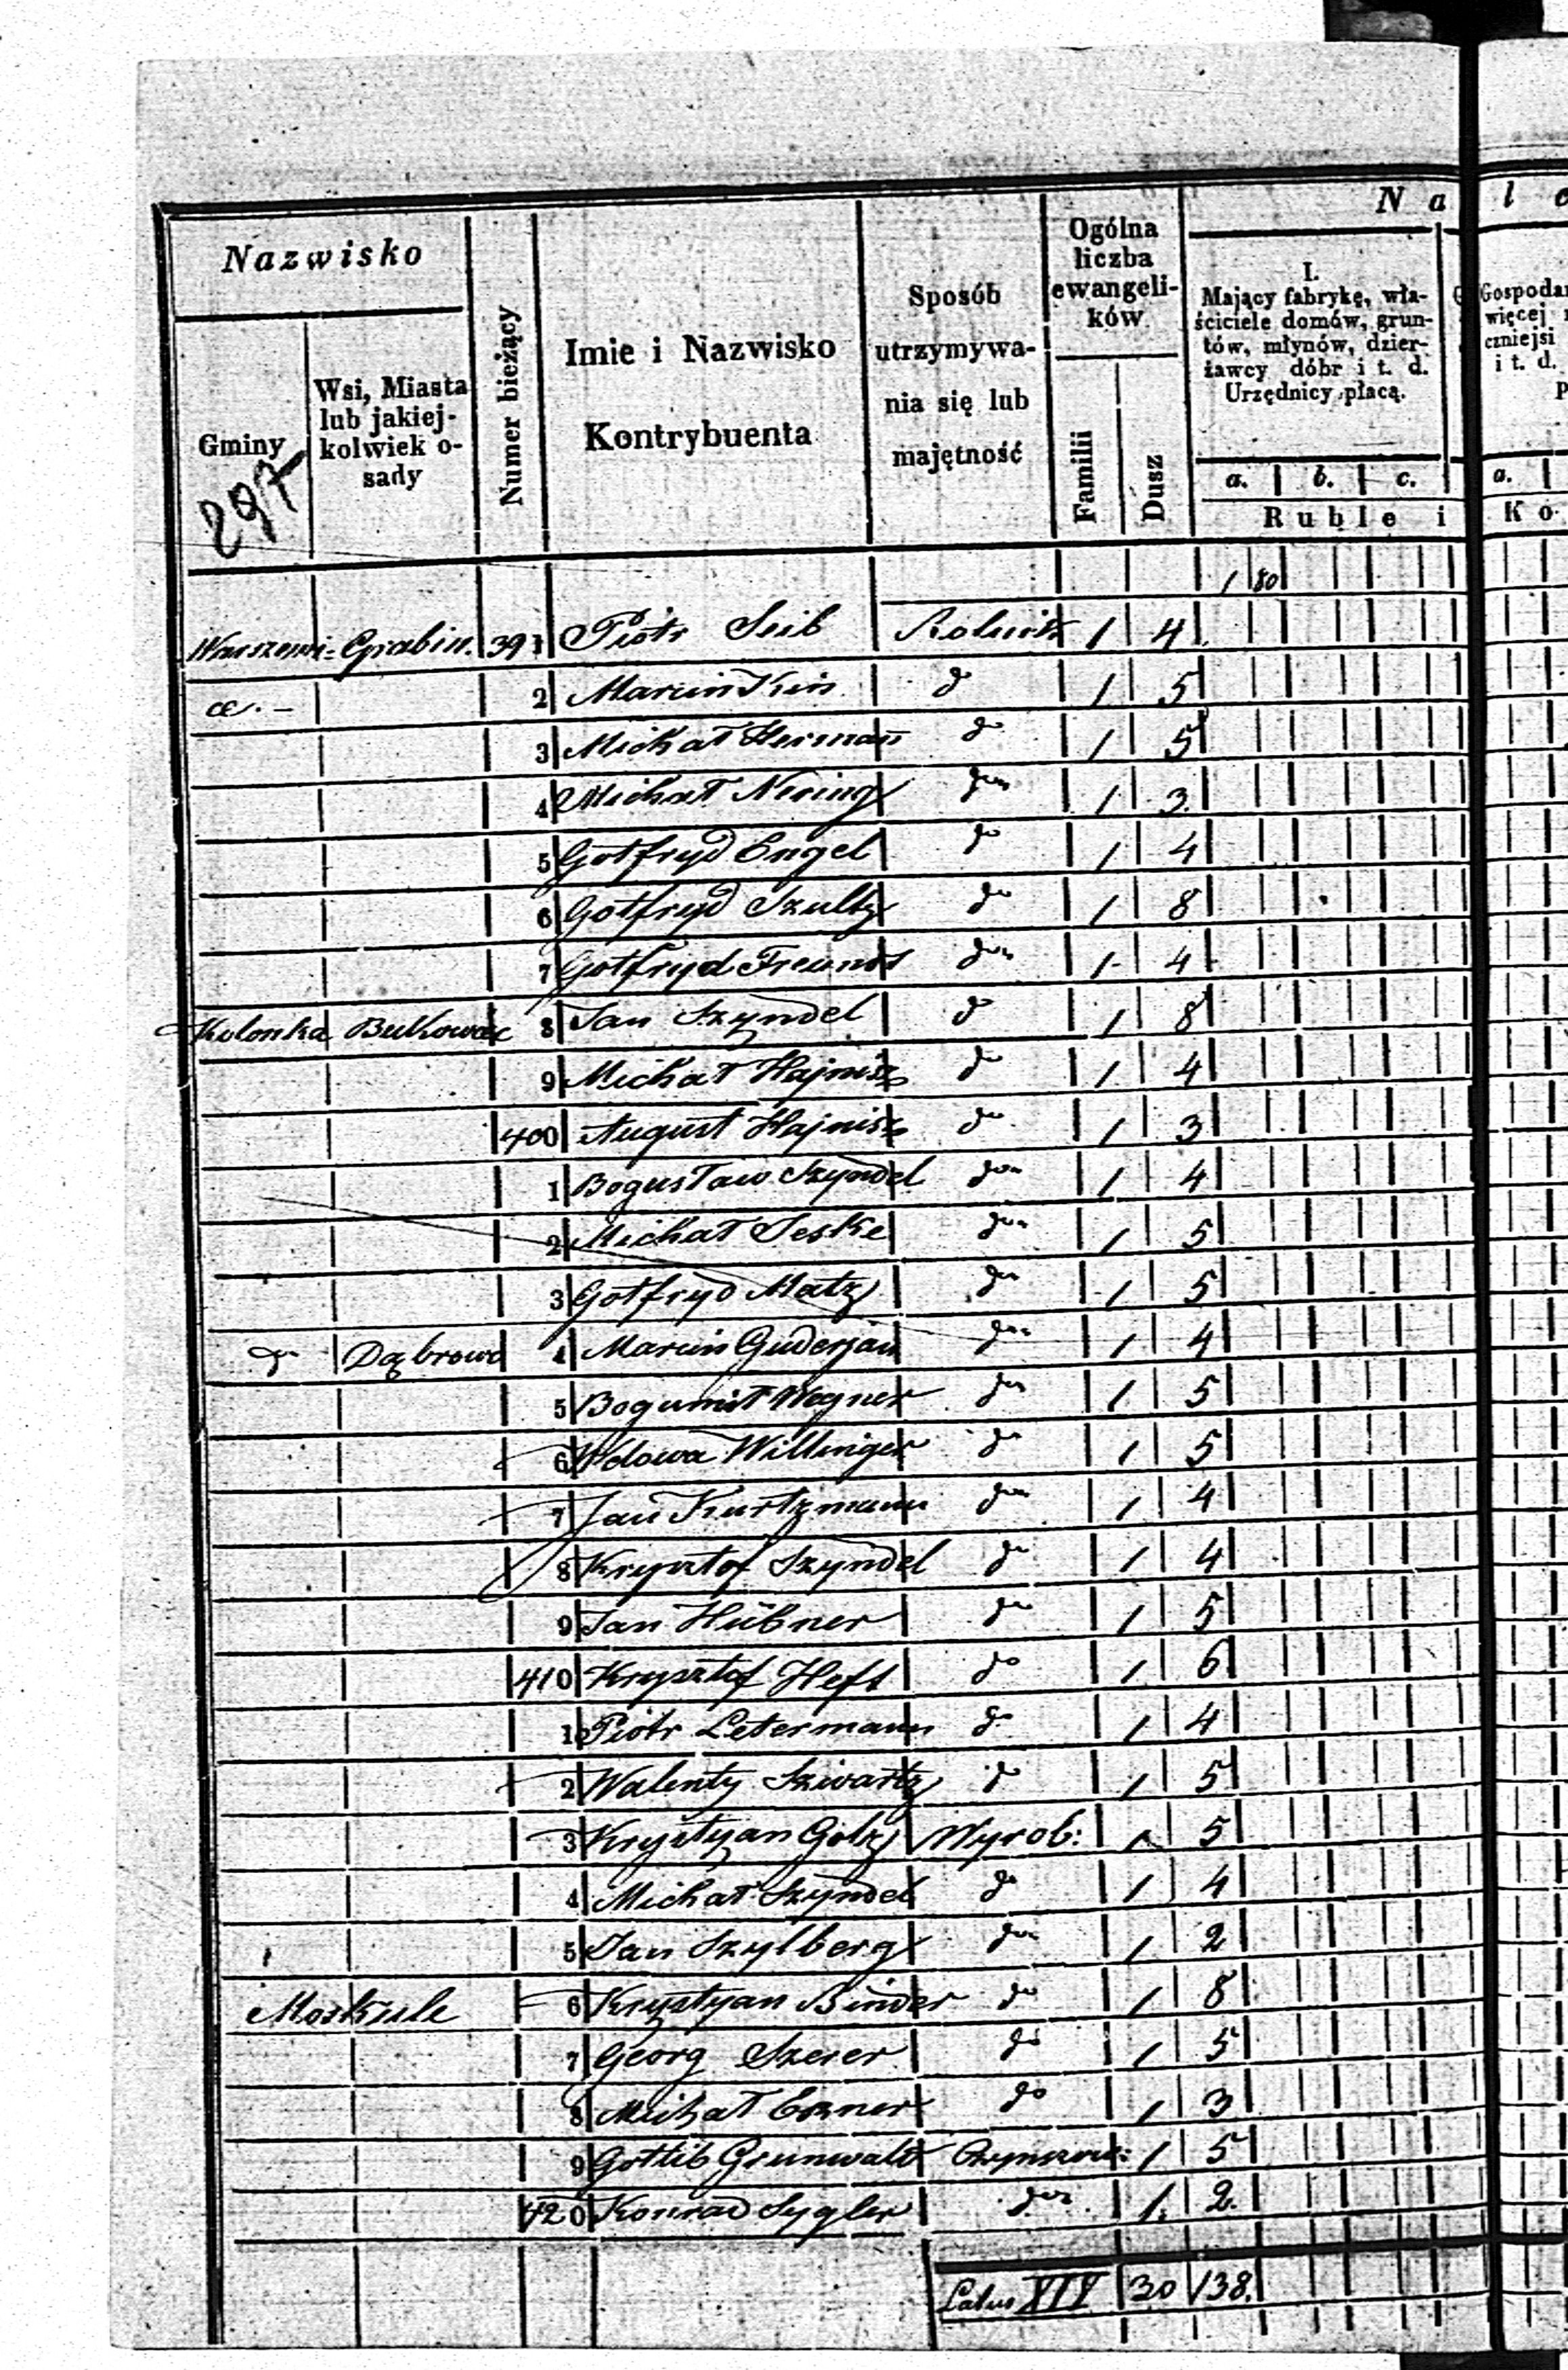 Nazwisko
Gminy
297
Wsi, Miasta
lub jakiej-
kolwiek o-
sady
Numer bieżący
Imie i Nazwisko
Kontrybuenta
Sposób
utrzymywa-
nia się lub
majętność
Ogólna
liczba
ewangeli-
ków
Familii
Dusz
N a l
I.
Mający fabrykę, wła-
ściciele domów, grun-
tów, młynów, dzier-
żawcy dóbr i t. d.
Urzędnicy płacą.
a. b. c.
Ruble i
Gospodar
więcej
czniejsi
i t. d.
a.
Ko
1 80
Grabin. 391 Piotr Seib Rolnik 1 4
ce. 2 Marcin d 1 5
3 Michał Herman do 1 5
4 Michał Nering do 1 3
5 Gotfryd Engel do 1 4
6 Gotfryd Szultz do 1 8
7 Gotfryd Freund do 1 4
Kolonka 8 Jan Szyndel do 1 8
9 Michał Hajnisz do 1 4
400 August Hajnisz do 1 3
1 Bogusław Szyndel do 1 4
2 Michał Jeske do 1 5
3 Gotfryd Matz do 1 5
do Dąbrowa 4 Marcin Guderjan do 1 4
5 Bogumił Wegner do 1 5
6 Wdowa Willinger do 1 5
7 Jan Kurtzmann do 1 4
8 Krysztof Szyndel do 1 4
9 Jan Hübner do 1 5
410 Krysztof Heft do 1 6
1 Piotr Letermann do 1 4
2 Walenty Szwartz do 1 5
3 Krystyan Goltz Wyrob: 1 5
4 Michał Szyndel do 1 4
5 Jan Szylberg do 1 2
Moskule 6 Krystyan Binder do 1 8
7 Georg Szerer do 1 5
8 Michał Exner do 1 3
9 Gottlib Grunwald 1 5
420 Konrad Sygler do 1 2
Latus XIV 30 138.